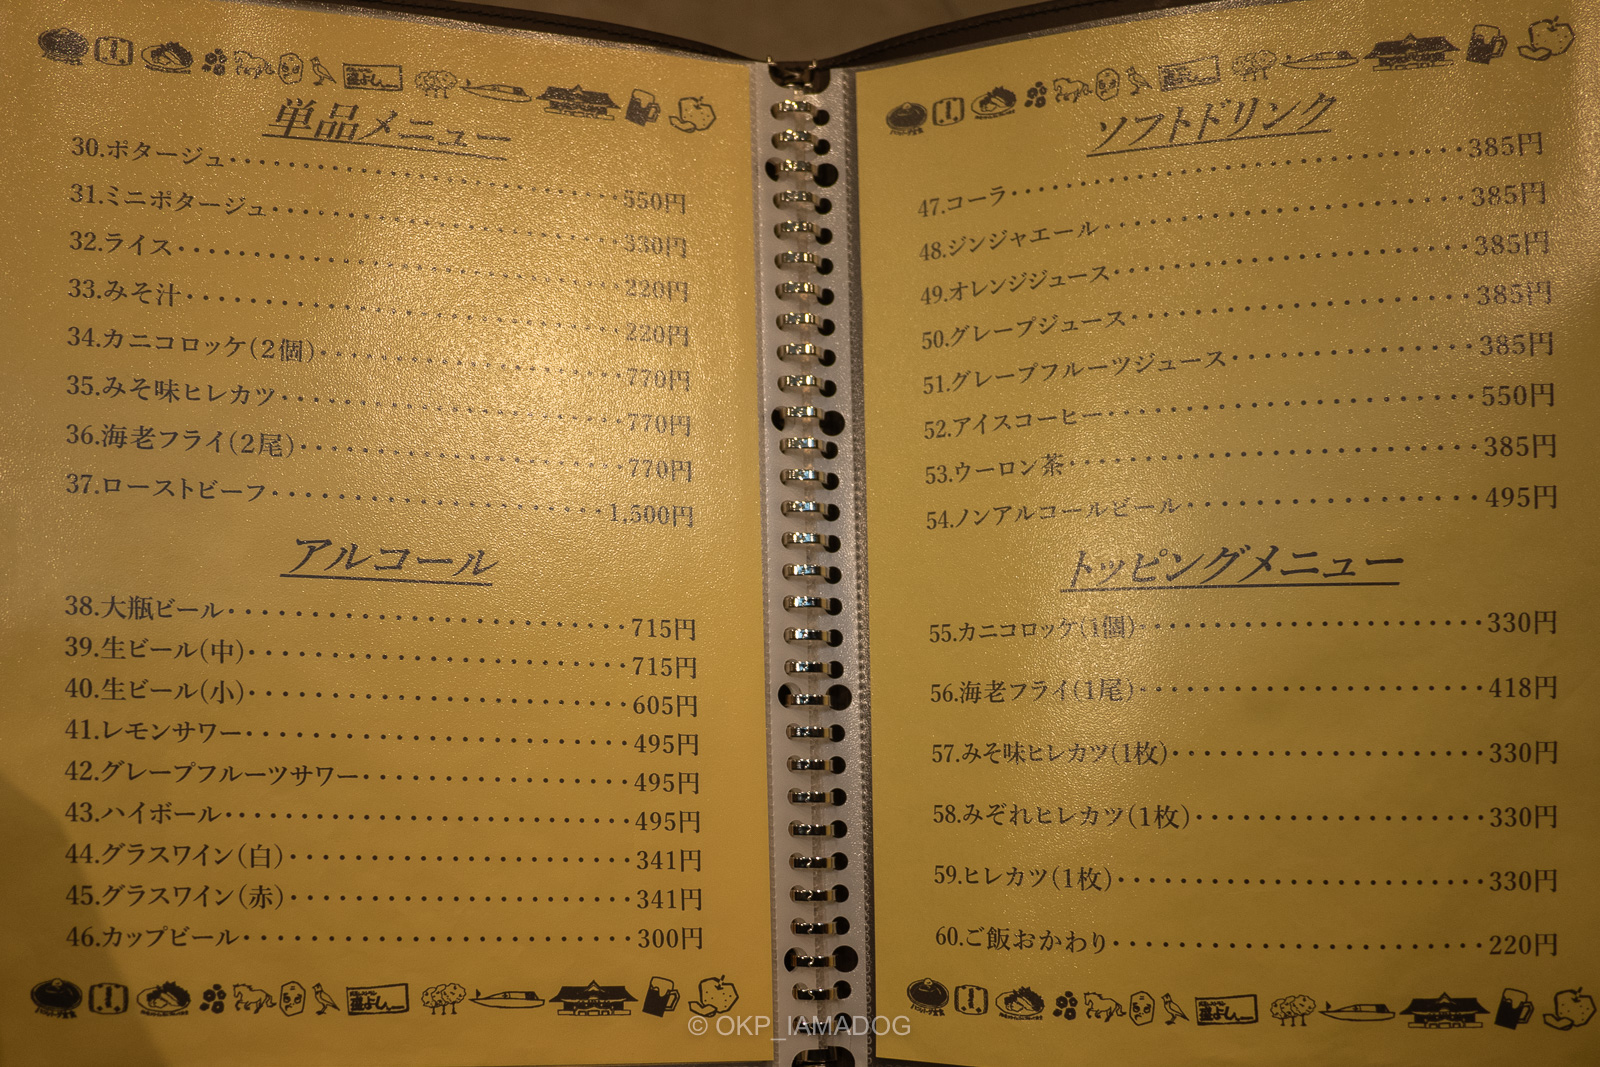 単品メニュー
30.ポタージュ 550円
31.ミニポタージュ 330円
32.ライス 220円
33.みそ汁 220円
34.カニコロッケ(2個) 770円
35.みそ味ヒレカツ 770円
36.海老フライ(2尾) 770円
37.ローストビーフ 1,500円
アルコール
38.大瓶ビール 715円
39.生ビール(中) 715円
40.生ビール(小) 605円
41.レモンサワー 495円
42.グレープフルーツサワー 495円
43.ハイボール 495円
44.グラスワイン(白) 341円
45.グラスワイン(赤) 341円
46.カップビール 300円
ソフトドリンク
47.コーラ 385円
48.ジンジャエール 385円
49.オレンジジュース 385円
50.グレープジュース 385円
51.グレープフルーツジュース 385円
52.アイスコーヒー 550円
53.ウーロン茶 385円
54.ノンアルコールビール 495円
トッピングメニュー
55.カニコロッケ(1個) 330円
56.海老フライ(1尾) 418円
57.みそ味ヒレカツ(1枚) 330円
58.みぞれヒレカツ(1枚) 330円
59.ヒレカツ(1枚) 330円
60.ご飯おかわり 220円
© OKP_IAMADOG